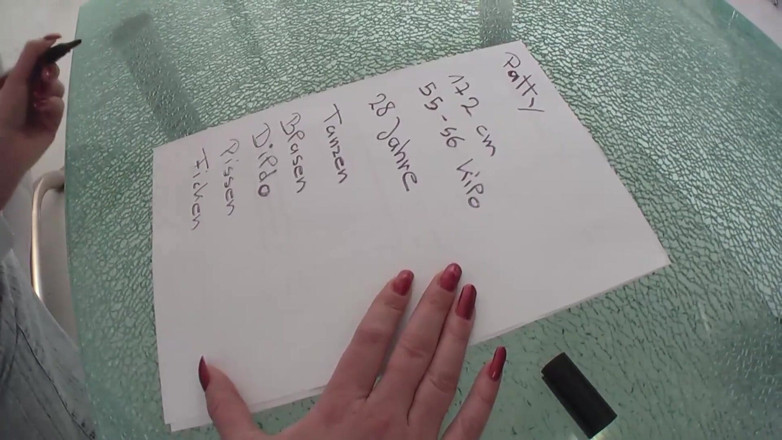 Patty
172 cm
55-56 Kilo
28 Jahre
Tanzen
Blasen
Dildo
Pissen
Ficken